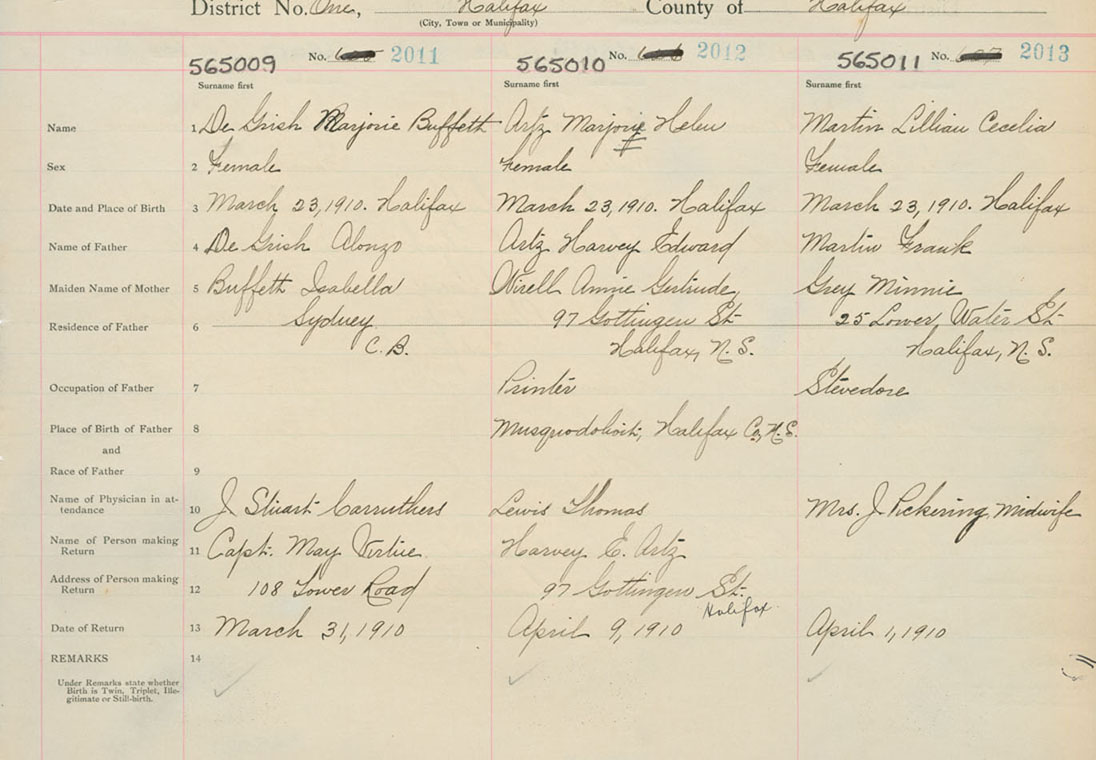 District No. One, Halifax County of Halifax
(City, Town or Municipality)
565009 No. 2011 565010 No. 2012 565011 No. 2013
Surname first Surname first Surname first
Name 1 De Grish Marjorie Buffett Artz Marjorie Helen Martin Lillian Cecelia
Sex 2 Female Female Female
Date and Place of Birth 3 March 23, 1910. Halifax March 23, 1910. Halifax March 23, 1910. Halifax
Name of Father 4 De Grish Alonzo Artz Harvey Edward Martin Frank
Maiden Name of Mother 5 Buffett Isabella Annie Gertrude Grey Minnie
Residence of Father 6 Sydney 97 Gottingen St 25 Lower Water St
C. B. Halifax, N. S. Halifax, N. S.
Occupation of Father 7 Printer Stevedore
Place of Birth of Father 8 Musquodoboit, Halifax Co, N.S.
and
Race of Father 9
Name of Physician in at-
tendance 10 J Stuart Carruthers Lewis Thomas Mrs. J Pickering, midwife
Name of Person making
Return 11 Capt. May Virtue Harvey E. Artz
Address of Person making
Return 12 108 Tower Road 97 Gottingen St.
Halifax
Date of Return 13 March 31, 1910 April 9, 1910 April 1, 1910
REMARKS 14
Under Remarks state whether
Birth is Twin, Triplet, Ille-
gitimate or Still-birth.